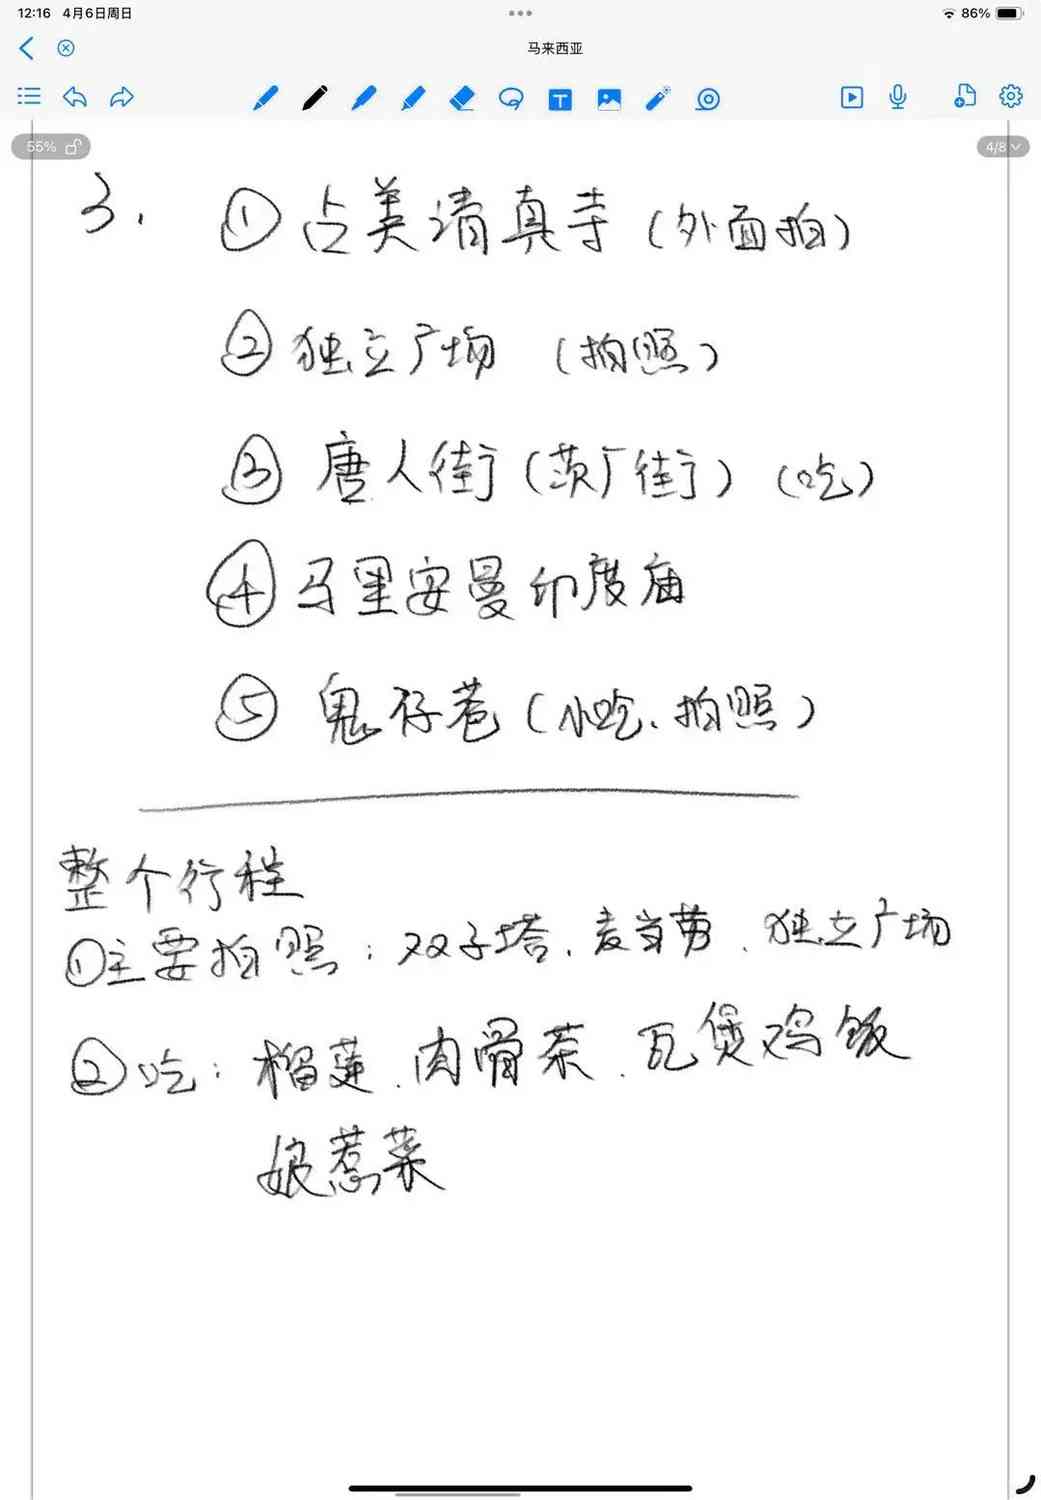 12:16 4月6日周日
86%
马来西亚
55%
4/8
3. ①占美清真寺(外面拍)
②独立广场 (拍照)
③唐人街(茨厂街)(吃)
④马里安曼印度庙
⑤鬼仔巷(小吃、拍照)
整个行程
①主要拍照:双子塔、麦当劳、独立广场
②吃:榴莲、肉骨茶、瓦煲鸡饭
娘惹菜